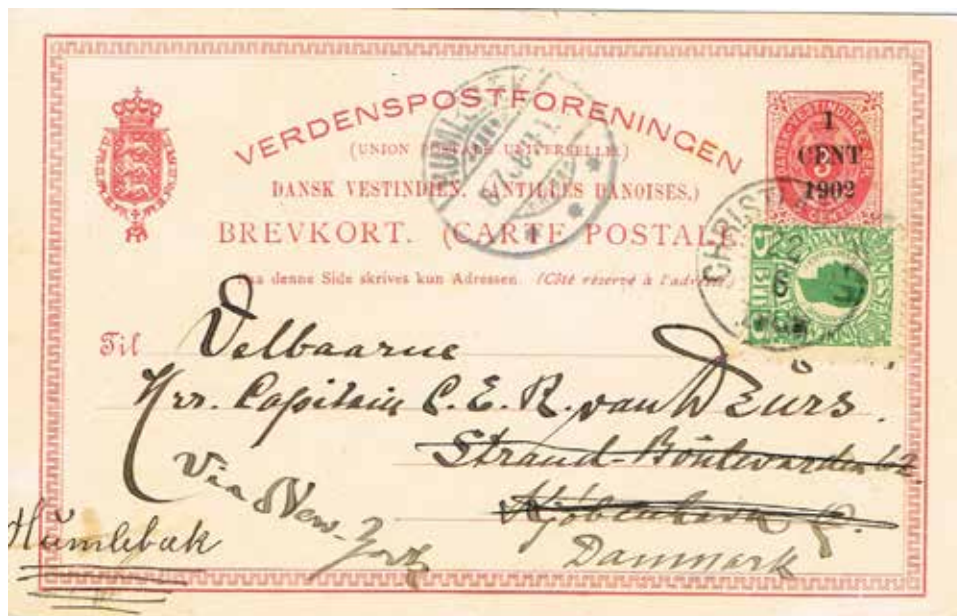 VERDENSPOSTFORENINGEN
(UNION POSTALE UNIVERSELLE)
DANSK VESTINDIEN. (ANTILLES DANOISES.)
BREVKORT. (CARTE POSTALE.
Paa denne Side skrives kun Adressen. (Côté réservé à l'adresse
1
CENT
1902
CHRIST
12
6
5
BIT
Til Velbaarne
Hrr. Capitain C. E. R. van Deurs.
Strand-Boulevarden 62
Kjöbenhavn
Danmark
Via New-York
Humlebæk